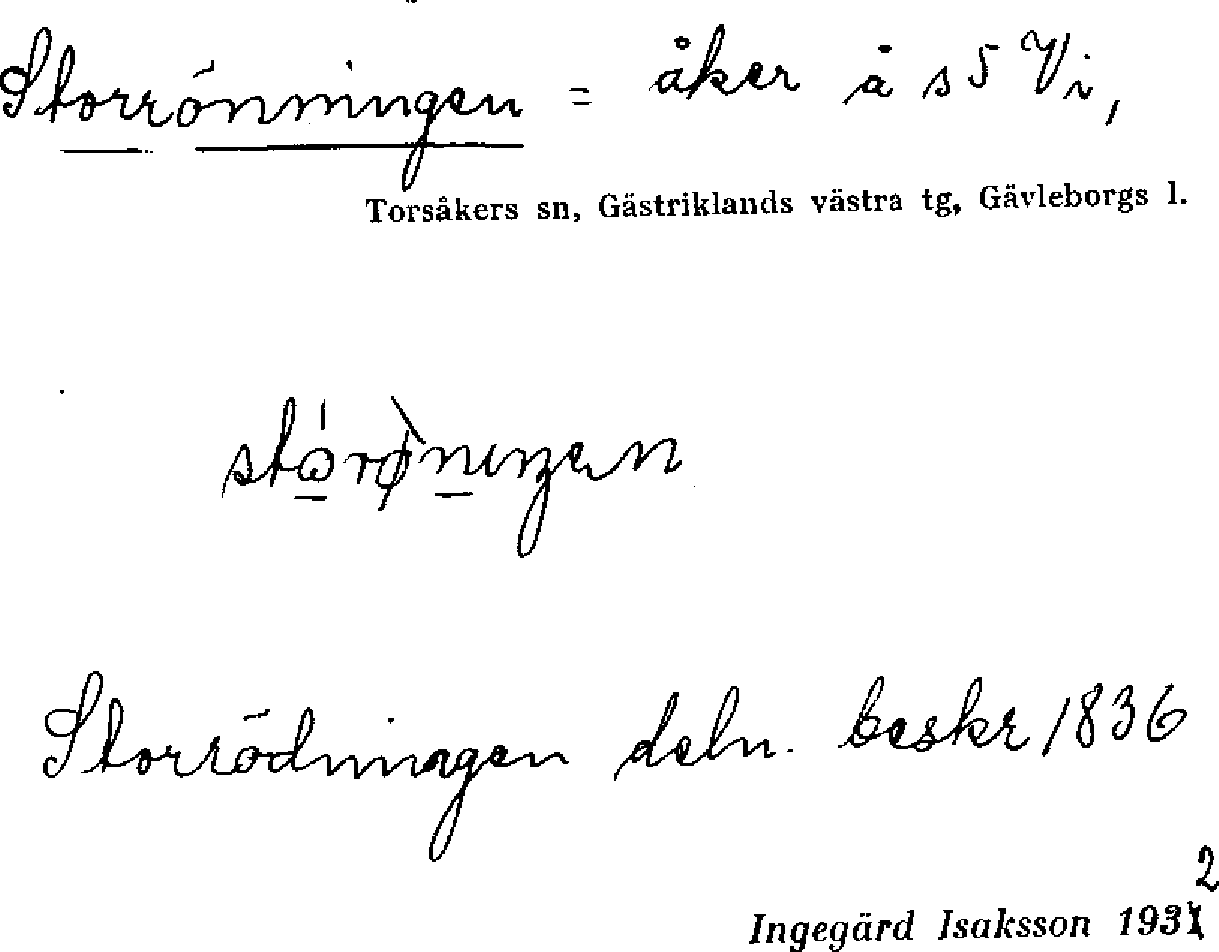 Storrönningen = åker å s 5 Vi,
Torsåkers sn, Gästriklands västra tg, Gävleborgs l.
Storrödningen deln. beskr 1836
2
Ingegärd Isaksson 193